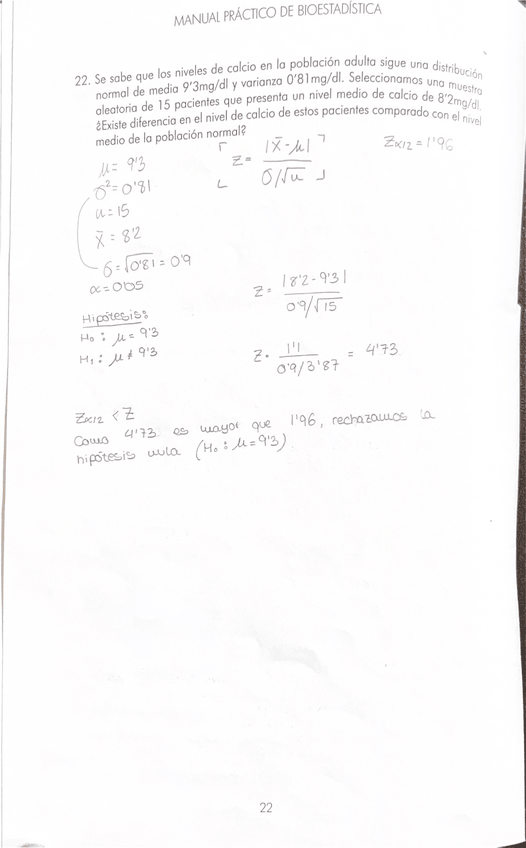 MANUAL PRÁCTICO DE BIOESTADÍSTICA
22. Se sabe que los niveles de calcio en la población adulta sigue una distribución
normal de media 9'3mg/dl y varianza 0'81mg/dl. Seleccionamos una muestra
aleatoria de 15 pacientes que presenta un nivel medio de calcio de 8'2mg/dl.
¿Existe diferencia en el nivel de calcio de estos pacientes comparado con el nivel
medio de la población normal?
μ = 9'3
σ² = 0'81
n = 15
x̄ = 8'2
σ = √0'81 = 0'9
α = 0'05
Z = |x̄ - μ| / σ/√n
Zα/2 = 1'96
Hipótesis:
H₀ : μ = 9'3
H₁ : μ ≠ 9'3
Z = |8'2 - 9'3| / 0'9/√15
Z = 1'1 / 0'9/3'87 = 4'73
Zα/2 < Z
Como 4'73 es mayor que 1'96, rechazamos la
hipótesis nula (H₀ : μ = 9'3).
22